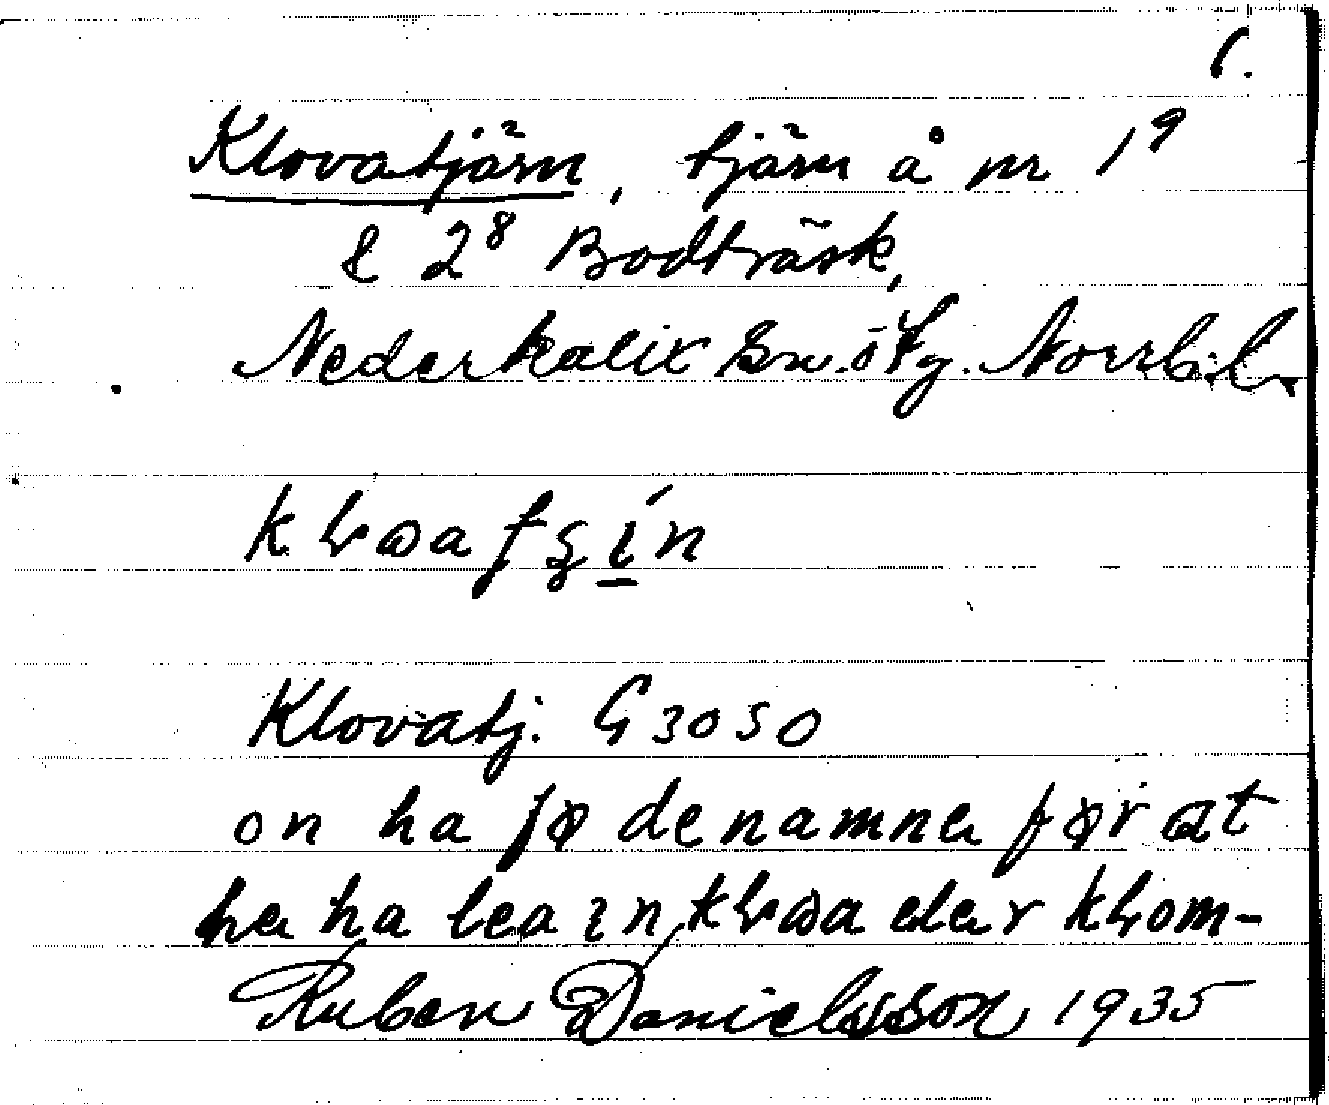 1.
Klovatjärn, tjärn å nr 1⁹
& 2⁸ Bodträsk,
Nederkalix sn. ö tg. Norrb. l.
Klovatj. G 3050
on ha fø de namne før at
he ha lea in kɬωa elər kɬom-
Ruben Danielsson 1935